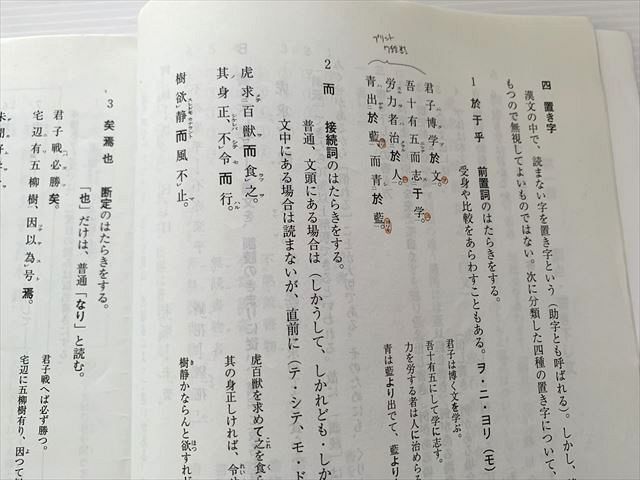 四　置き字
漢文の中で、読まない字を置き字という（助字とも呼ばれる）。しかし、
もつので無視してよいものではない。次に分類した四種の置き字について、
1　於于乎　前置詞のはたらきをする。
受身や比較をあらわすこともある。ヲ・ニ・ヨリ（モ）
君子博学於文。
君子は博く文を学ぶ。
吾十有五而志于学。
吾十有五にして学に志す。
労力者治於人。
力を労する者は人に治めらる
青出於藍、而青於藍。
青は藍より出でて、藍より
プリント
2　而　接続詞のはたらきをする。
普通、文頭にある場合は（しかうして、しかれども・しか
文中にある場合は読まないが、直前に（テ・シテ、モ・ド
虎求百獣而食之。
虎百獣を求めて之を食
其身正、不令而行。
其の身正しければ、令
樹欲静而風不止。
樹静かならんと欲すれど
3　矣焉也　断定のはたらきをする。
「也」だけは、普通「なり」と読む。
君子戦必勝矣。
君子戦へば必ず勝つ。
宅辺有五柳樹、因以為号焉。
宅辺に五柳樹有り、因つて